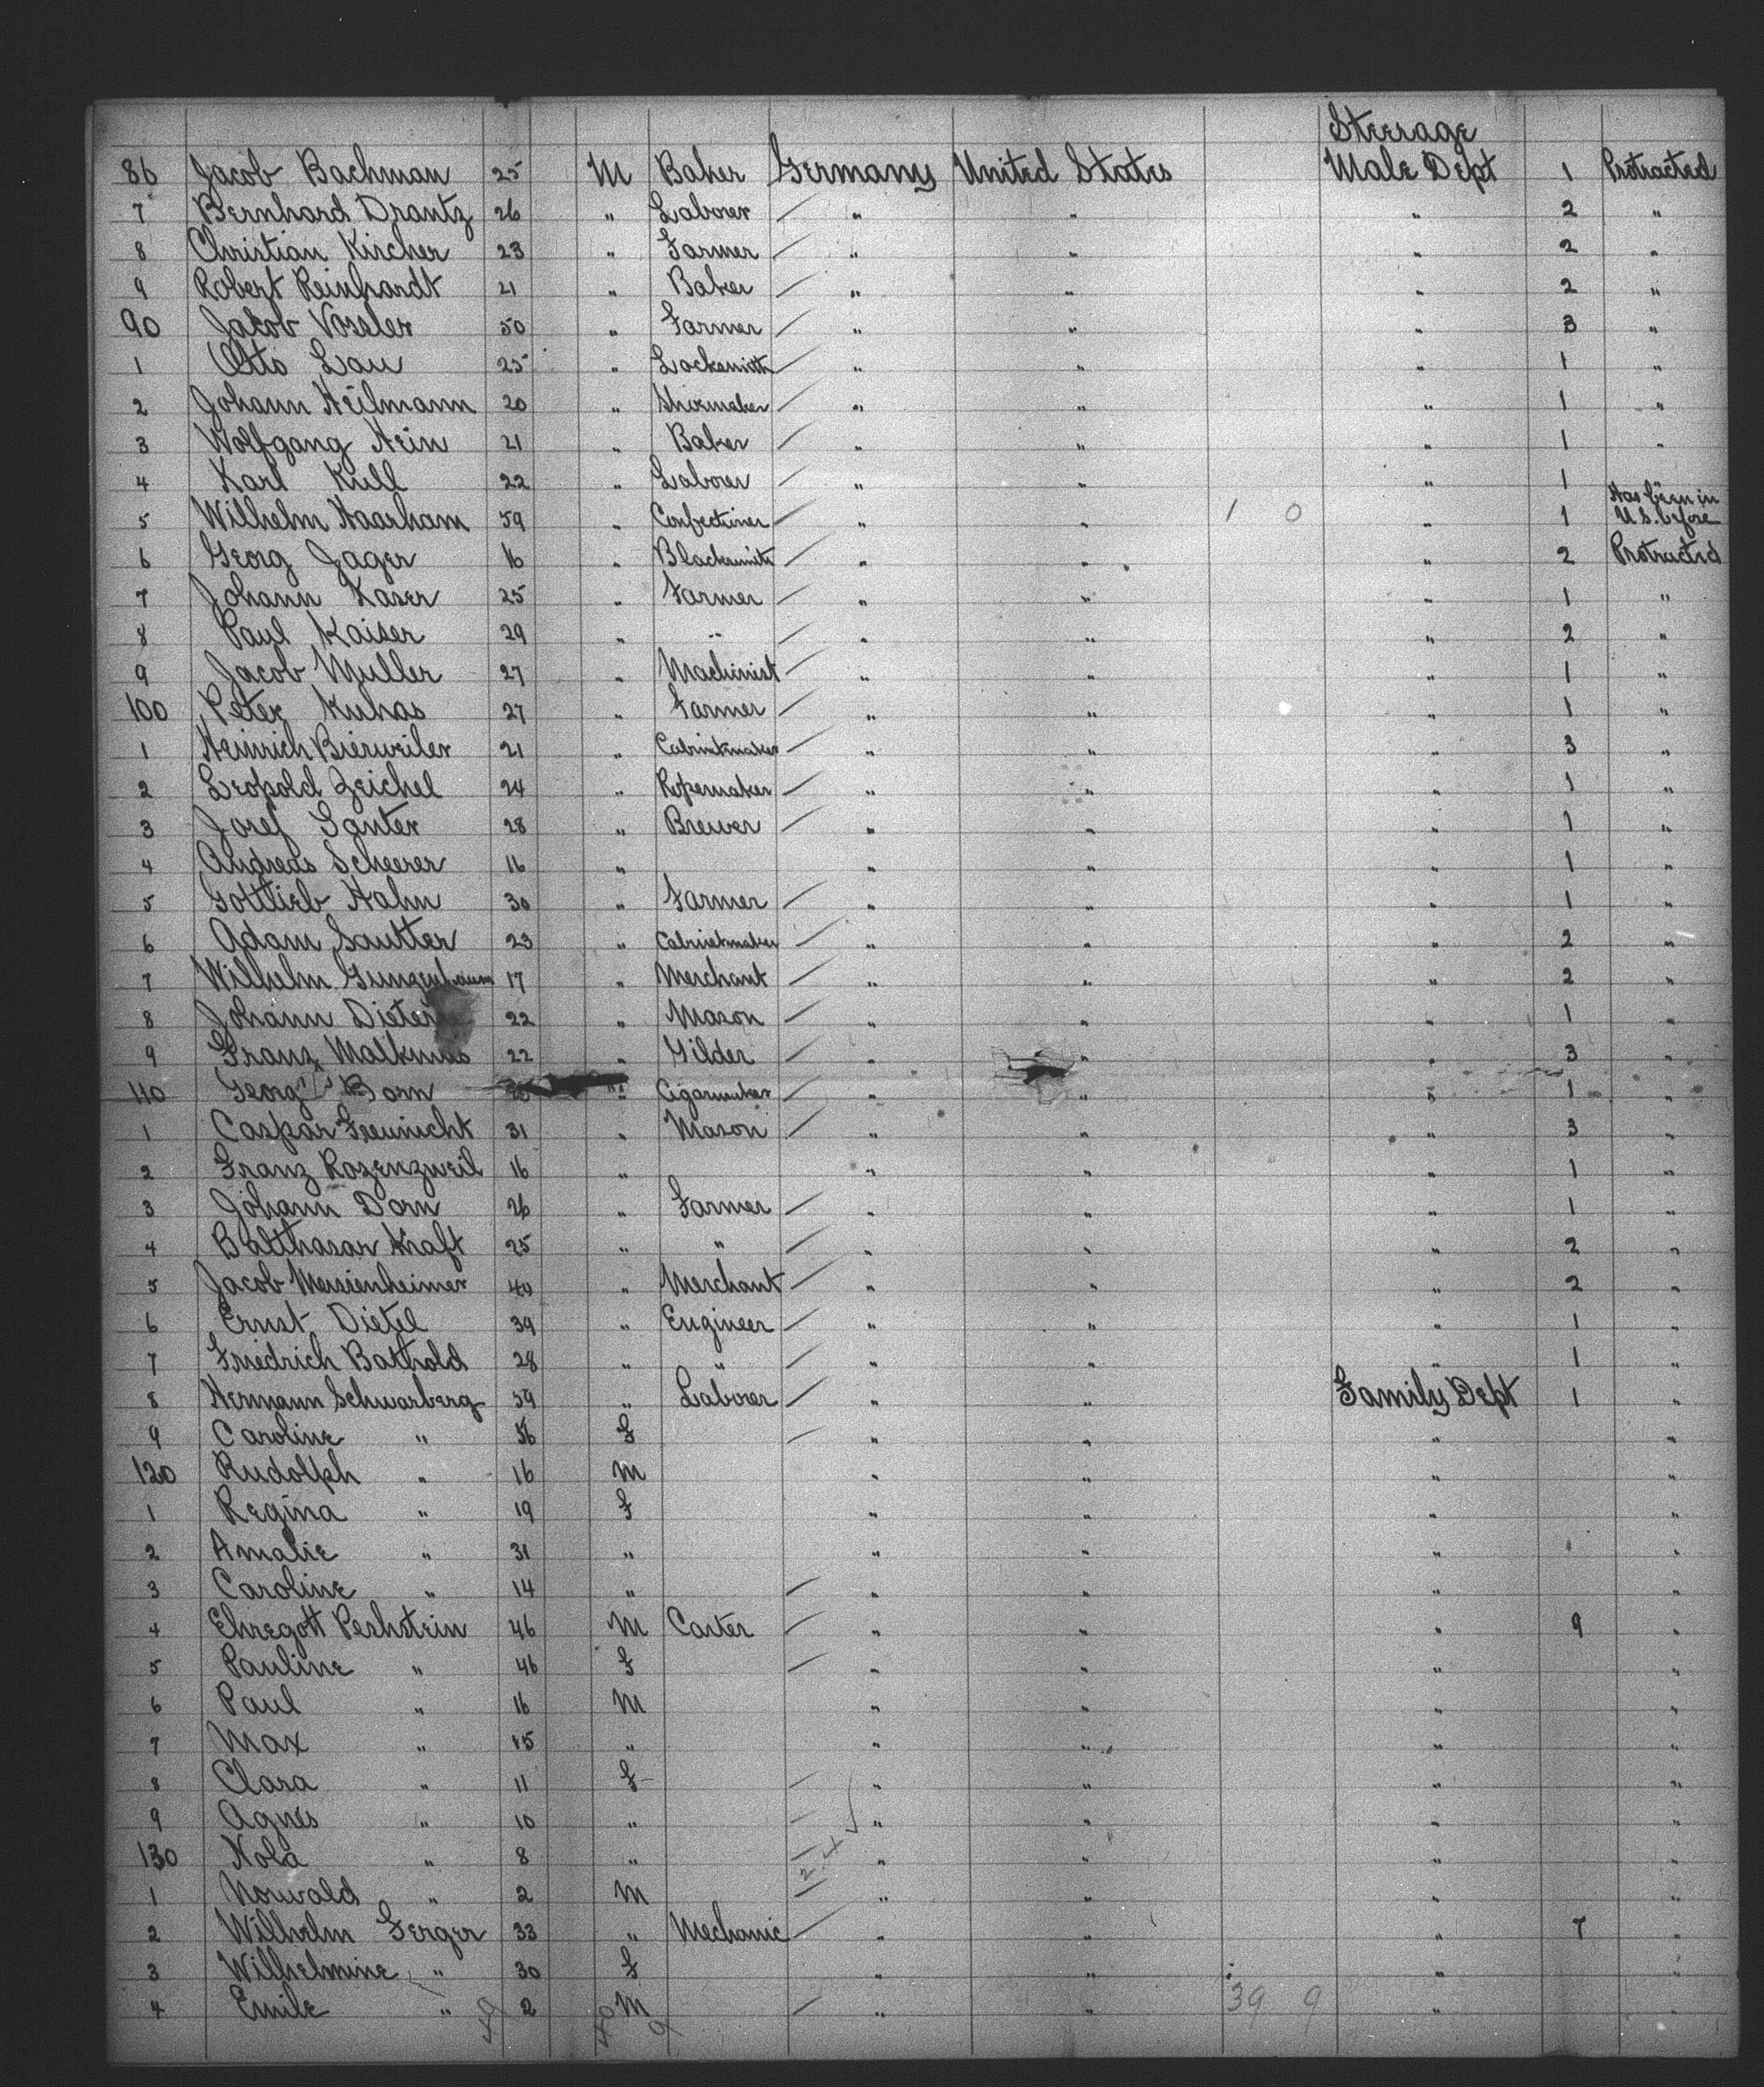 Steerage
86 Jacob Bachman 25 M Baker Germany United States Male Dept 1 Protracted
7 Bernhard Drantz 26 " Laborer " " " 2 "
8 Christian Kircher 23 " Farmer " " " 2 "
9 Robert Reinhardt 21 " Baker " " " 2 "
90 Jacob Vossler 50 " Farmer " " " 3 "
1 Otto Lau 25 " Locksmith " " " 1 "
2 Johann Heilmann 20 " Shoemaker " " " 1 "
3 Wolfgang Hein 21 " Baker " " " 1 "
4 Karl Kull 22 " Laborer " " " 1
5 Wilhelm Haarham 59 " Confectioner " " 1 0 " 1 Has been in U.S. before
6 Georg Jager 16 " Blacksmith " " " 2 Protracted
7 Johann Kaser 25 " Farmer " " " 1 "
8 Paul Kaiser 29 " " " " " 2 "
9 Jacob Muller 27 " Machinist " " " 1 "
100 Peter Kuhas 27 " Farmer " " " 1 "
1 Heinrich Bierweiler 21 " Cabinetmaker " " " 3 "
2 Leopold Zeichel 24 " Ropemaker " " " 1 "
3 Josef Ganter 28 " Brewer " " " 1 "
4 Andreas Scheerer 16 " " " " 1 "
5 Gottlieb Hahn 30 " Farmer " " " 1 "
6 Adam Sautter 23 " Cabinetmaker " " " 2 "
7 Wilhelm 17 " Merchant " " " 2 "
8 Johann Dieter 22 " Mason " " " 1 "
9 Franz Malkmus 22 " Gilder " " " 3 "
110 Georg Born " Cigarmaker " " " 1 "
1 Caspar 31 " Mason " " " 3 "
2 Franz Rozenzweil 16 " " " " 1 "
3 Johann Dorn 26 " Farmer " " " 1 "
4 Balthasar Kraft 25 " " " " " 2 "
5 Jacob 40 " Merchant " " " 2 "
6 Ernst Dietel 39 " Engineer " " " 1 "
7 Friedrich Bathold 28 " " " " " 1 "
8 Hermann Schwarberg 59 " Laborer " " Family Dept 1 "
9 Caroline " 56 F " " " "
120 Rudolph " 16 M " " " "
1 Regina " 19 F " " " "
2 Amalie " 31 " " " " "
3 Caroline " 14 " " " " "
4 Ehregott Peshstein 46 M Carter " " " 9 "
5 Pauline " 46 F " " " "
6 Paul " 16 M " " " "
7 Max " 15 " " " " "
8 Clara " 11 F " " " "
9 Agnes " 10 " " " " "
130 Nola " 8 " " " " "
1 Norwald " 2 M " " " "
2 Wilhelm Gerger 33 " Mechanic " " " 7 "
3 Wilhelmine " 30 F " " " "
4 Emile " 2 M " " 39 9 "